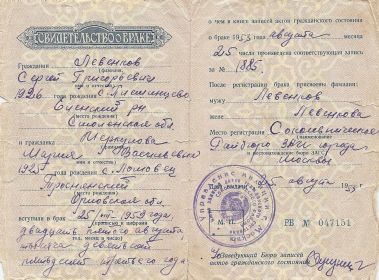 СВИДЕТЕЛЬСТВО О БРАКЕ
Гражданин Левенков
(фамилия,
Сергей Григорьевич
имя и отчество)
1926 года рождения с.
(место рождения)
Смоленская обл.
(место рождения)
и гражданка Меркулова
(фамилия,
Мария Васильевна
имя и отчество)
1925 года рождения с.
Орловская обл.
(место рождения)
вступили в брак 25/VIII 1953 года,
двадцать пятого августа
(год, месяц и число)
тысяча девятьсот
пятьдесят третьего года
о чем в книге записей актов гражданского состояния
о браке 1953 года августа месяца
25 числа произведена соответствующая запись
за № 1885
После регистрации брака присвоены фамилии:
мужу Левенков
жене Левенкова
Место регистрации Сокольнический
Рай бюро ЗАГС города
Москвы
25 августа 1953 г.
М. П.
РБ № 047151
Заведующий Бюро записей
актов гражданского состояния